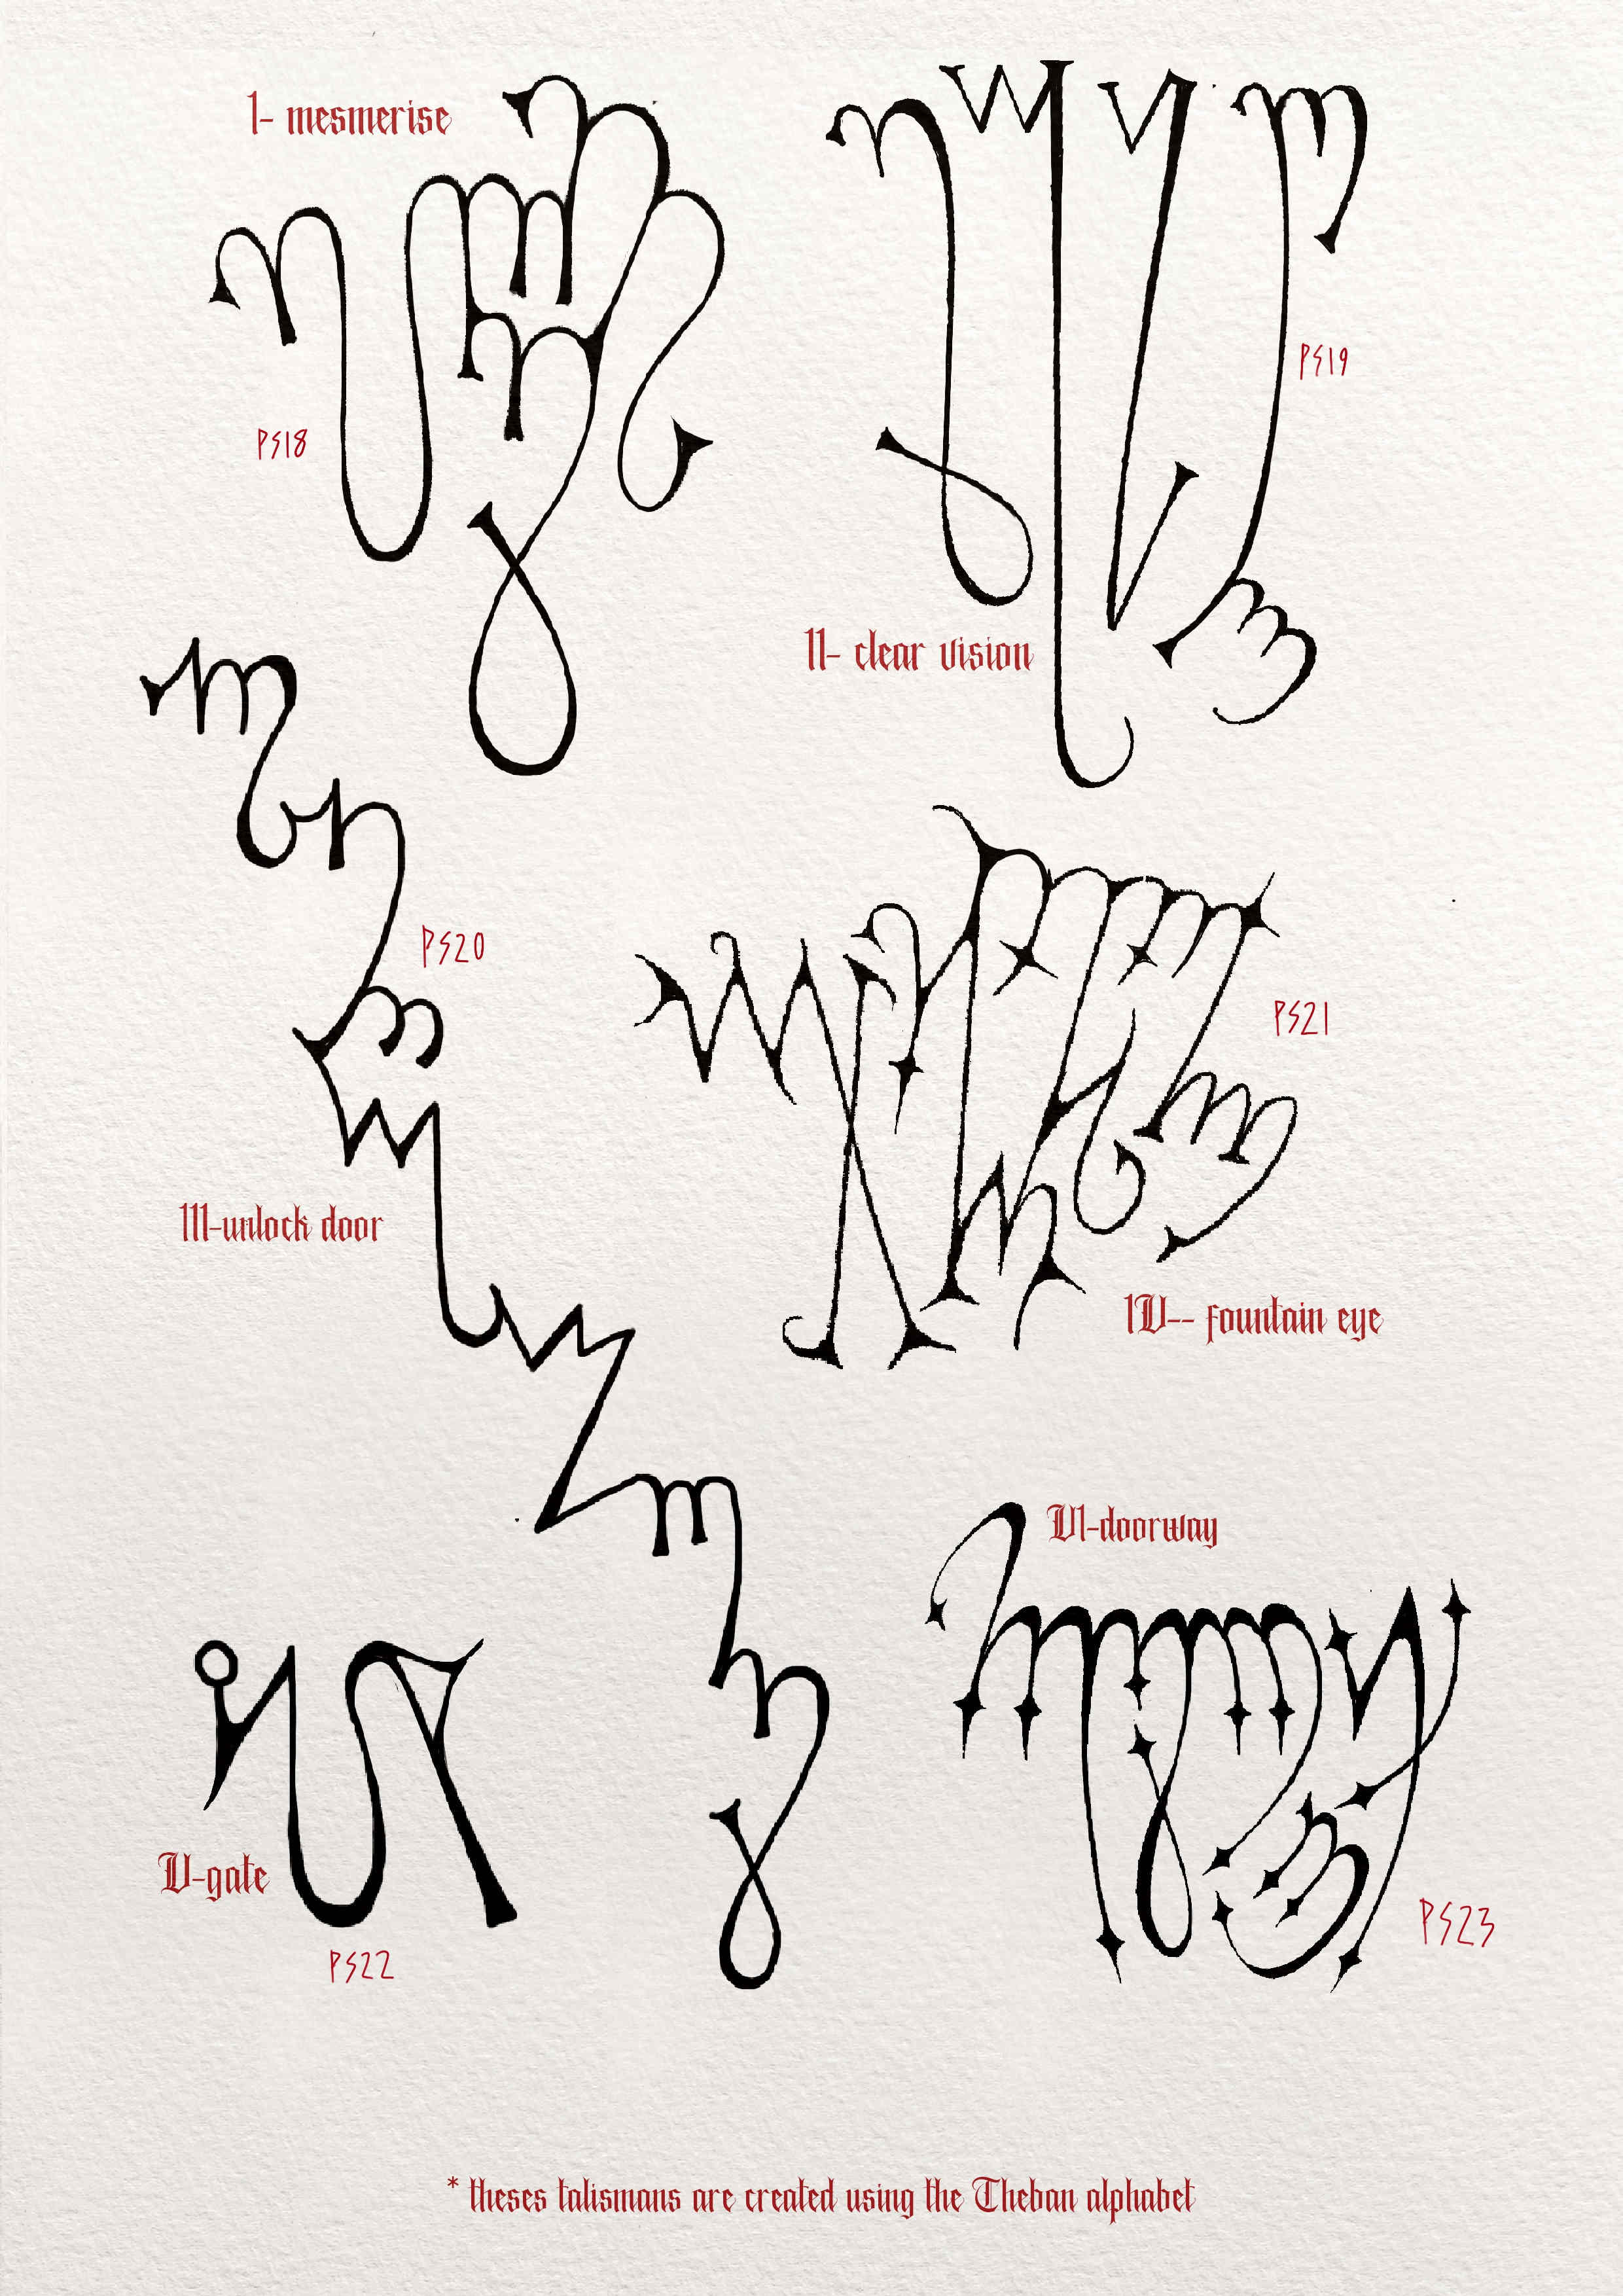 I- mesmerise
PS18
PS19
II- clear vision
PS20
III-unlock door
PS21
IV-- fountain eye
V-gate
PS22
VI-doorway
PS23
* theses talismans are created using the Theban alphabet